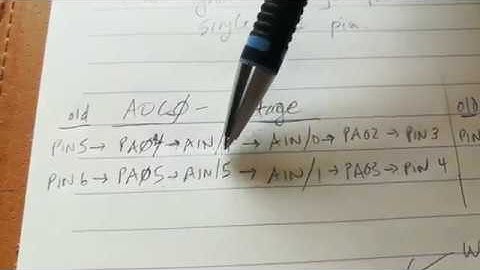 single pin
old ADCØ - tage old
PIN5 → PA04 → AIN/ → AIN/0 → PA02 → PIN 3
PIN6 → PAØ5 → AIN/5 → AIN/1 → PA03 → PIN 4